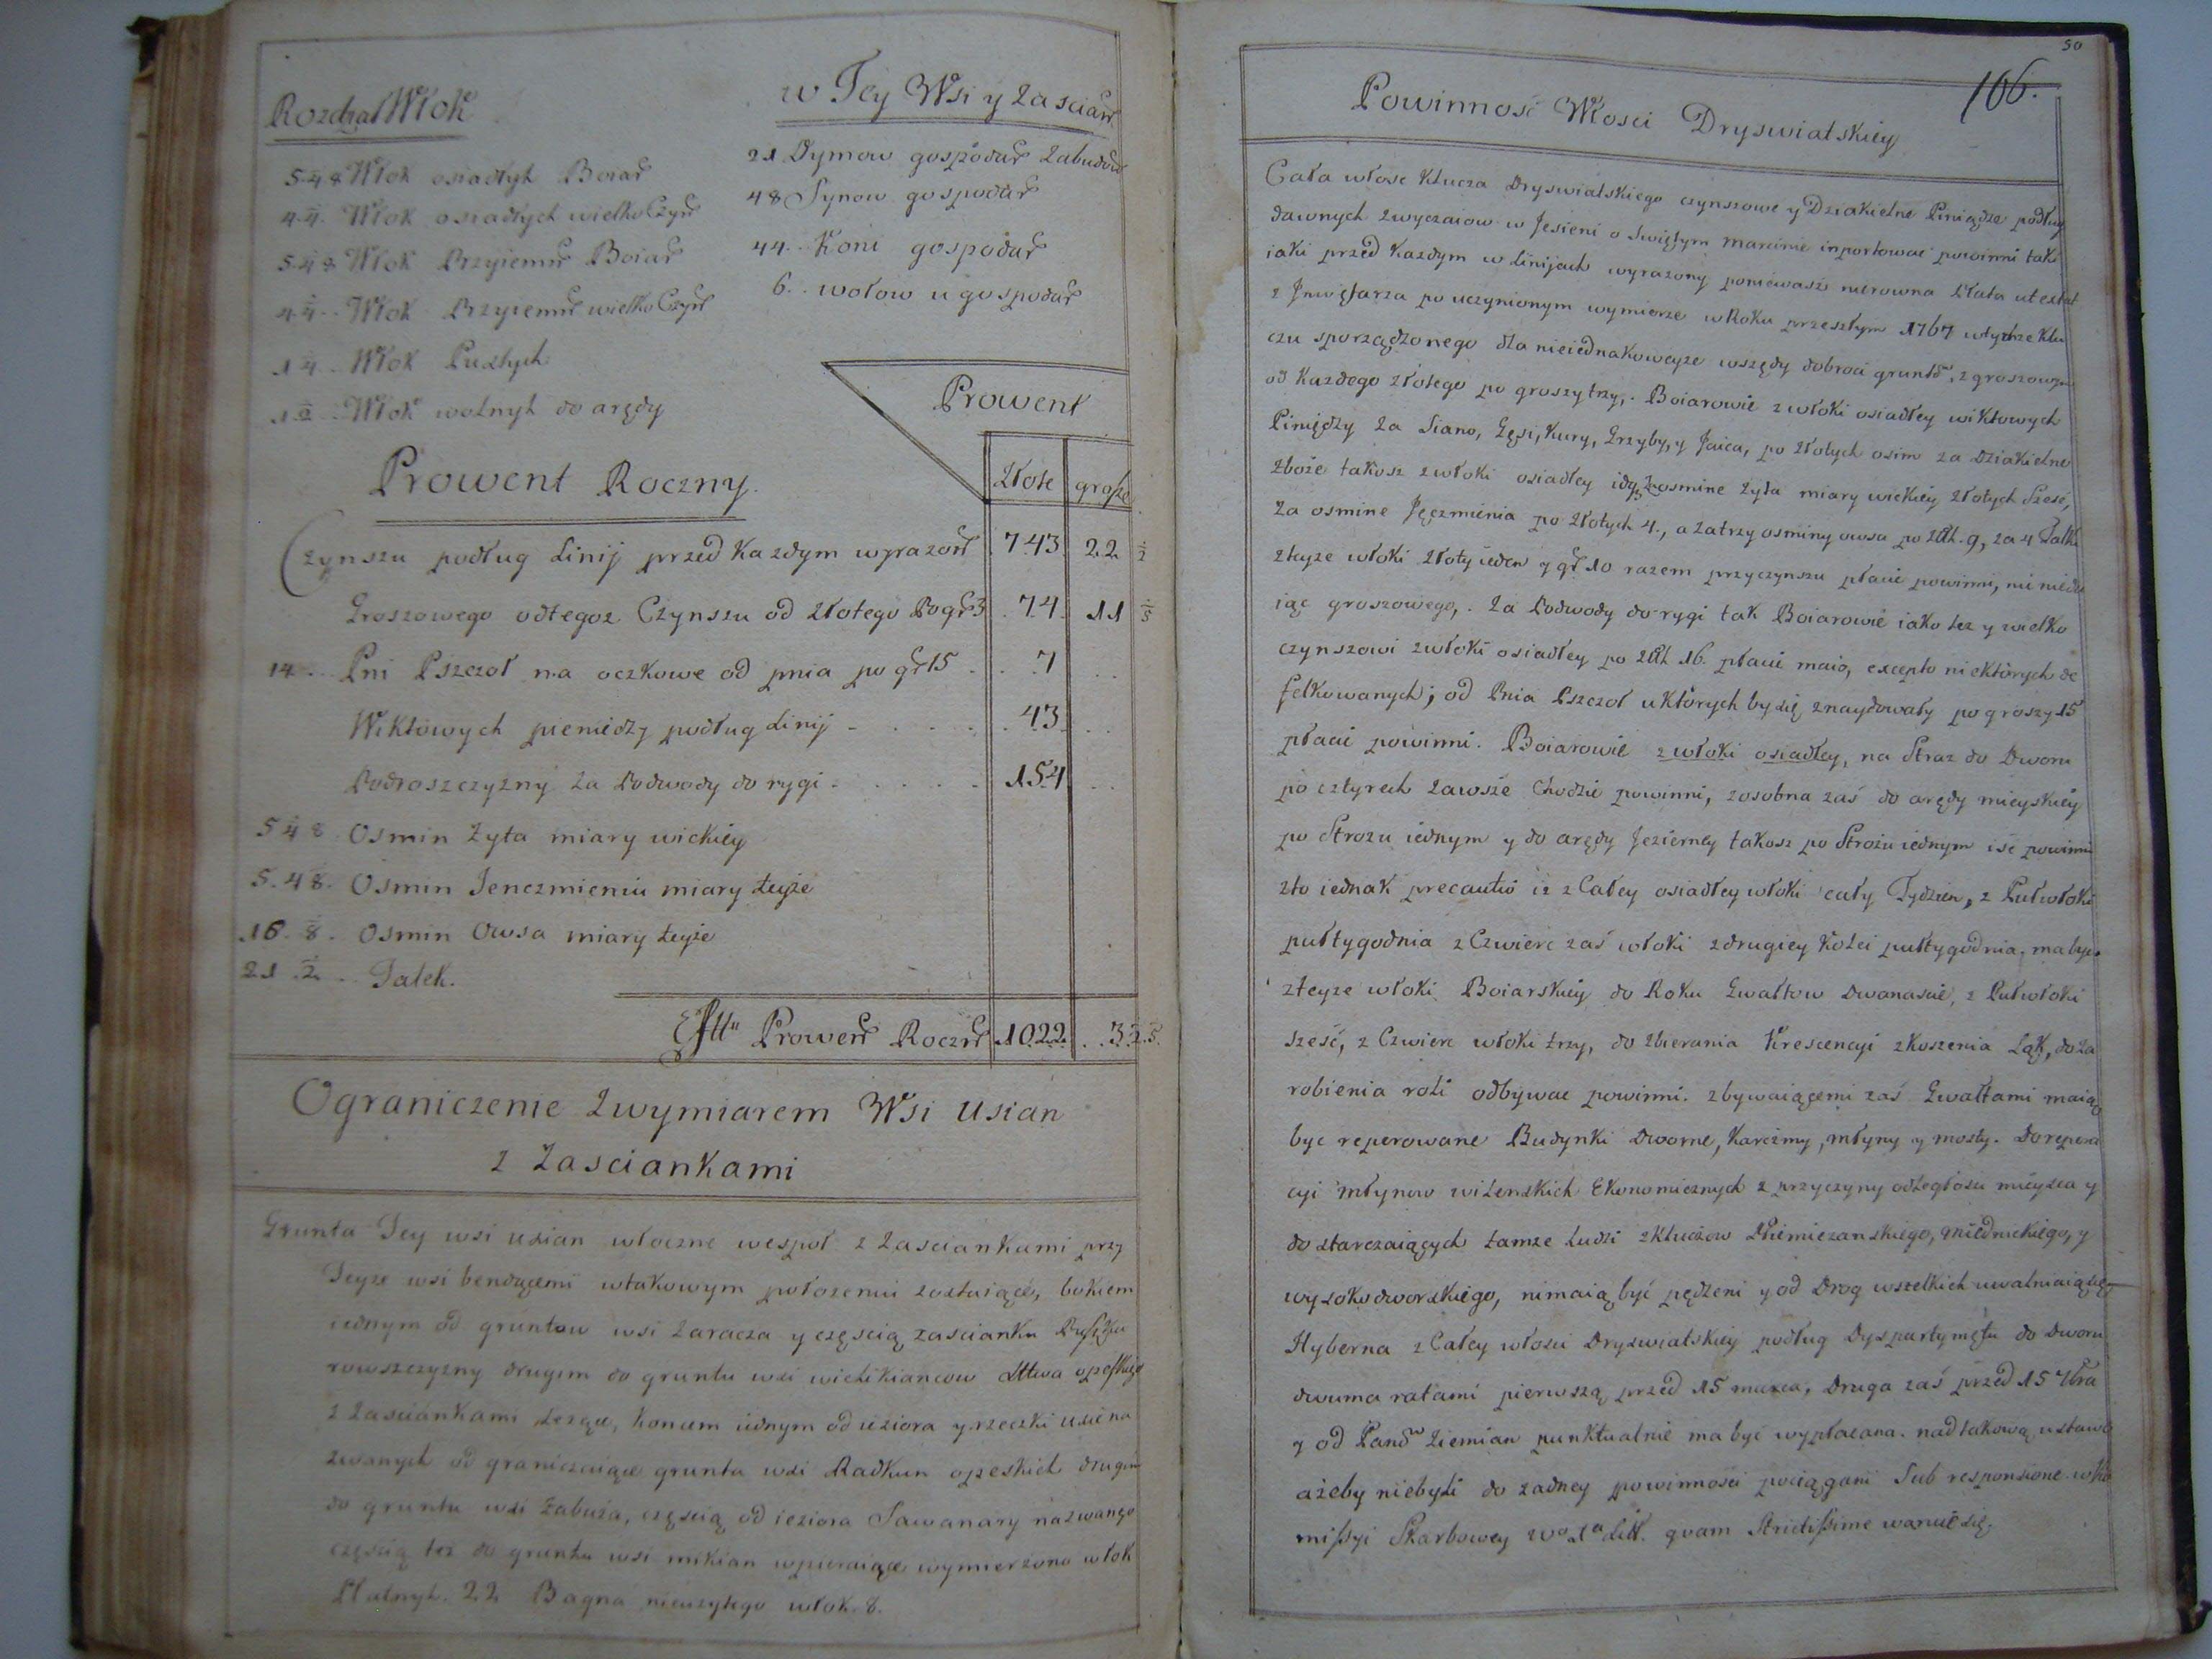 Rozdział Włok
5 4 8 Włok osiadłych Boiar
4. 4. Włok osiadłych wielko Czyn
5 4 8 Włok Przyiemn Boiar
4. 4. Włok Przyiemn wielko Czyn
1 4. Włok Pustych
1 2. Włok wolnych do arędy
w Tey Wsi y Zascian
21 Dymow gospodar Zabudow
48 Synow gospodar
44.. Koni gospodar
6.. wołow u gospodar
Prowent
Prowent Roczny.
Złote grosze
Czynszu podług Linij przed Każdym wyrażon 743. 22 1/2
Groszowego od tegoż Czynszu od Złotego Po gr 3 74 11 1/5
14... Pni Pszczoł na oczkowe od pnia po gr 15 . . 7 . .
Wiktowych pieniedzy podług Linij - . . . . . 43. . .
Podroszczyzny za Podwody do rygi . . . . . 154. . .
5 4 8. Osmin Zyta miary wickiey
5. 4 8. Osmin Jenczmieniu miary teyże
16. 8. Osmin Owsa miary teyże
21 2.. Talek.
Prowen Roczn 1022 . 3
Ograniczenie z wymiarem Wsi Usian
z Zasciankami
Grunta Tey wsi usian włoczne wespoł z Zasciankami przy
Teyze wsi bendącemi w takowym położeniu zostaiące, bokiem
iednym od gruntow wsi Zaracza y częscią zascianku
rowszczyzny drugim do gruntu wsi
z Zasciankami Leżące, koncem iednym od ieziora y rzeczki
zwanych od graniczaiące grunta wsi Radkun opeskich drugim
do gruntu wsi Zabuża, częscią od ieziora Sawanary nazwanego
częscią też do gruntu wsi mikian wpieraiące wymierzono włok
22 Bagna nieużytego włok. 8.
50
106.
Powinnosć Włosci Dryswiatskiey
Cała włosc Klucza Dryswiatskiego czynszowe y Dziakielne Piniądze podług
dawnych zwyczaiow w Jesieni o Swiętym Marcinie inportować powinni taki
iaki przed Każdym w Linijach wyrażony poniewasz nierowna Płata
z Inwętarza po uczynionym wymierze w Roku przeszłym 1767 w tymże Klu
czu sporządzonego dla nieiednakoweyze wszędy dobroci gruntō, z groszowym
od Każdego złotego po groszy trzy,. Boiarowie z włoki osiadłey wiktowych
Piniędzy za Siano, Gęsi, Kury, Grzyby, y Jaica, po złotych osim za Dziakielne
zboże takosz z włoki osiadłey idą za osmine żyta miary wickiey złotych Szesć,
za osmine Jęczmienia po złotych 4., a za trzy osminy owsa po złt. 9, za 4 Talki
z teyze włoki złoty ieden y gr 10 razem przy czynszu płacić powinni, nie
iąc groszowego,. za Podwody do rygi tak Boiarowie iako też y wielko
czynszowi z włoki osiadłey po złt 16. płacić maią, excepto niektórych de
felkowanych; od Pnia Pszczoł u Ktorych by się znaydowały po groszy 15
płacić powinni. Boiarowie z włoki osiadłey, na Straz do Dworu
po cztyrech zawsze chodzić powinni, zosobna zaś do arędy mieyskiey
po Strozu iednym y do arędy Jezierney takosz po Strożu iednym iść powinni
zto iednak precautio iż z Całey osiadłey włoki cały Tydzien, z Pułwłoki
pułtygodnia z Czwierc zaś włoki z drugiey kolei pułtygodnia. ma byc
z teyze włoki Boiarskiey do Roku Gwałtow Dwanascie, z Pułwłoki
szesć, z Czwierc włoki trzy, do zbierania Krescencyi zkoszenia Łąk, do za
robienia roli odbywac powinni. zbywaiącemi zaś Gwałtami maią
byc reperowane Budynki Dworne, Karczmy, młyny y mosty. Do repera
cyi młynow wilenskich Ekonomicznych z przyczyny odległosci mieysca y
do starczaiących tamże Ludzi z Kluczow Niemiezanskiego, miednickiego, y
wysokodworskiego, nimaią być pędzeni y od Drog wszelkich uwalniaią się,
Hyberna z Całey włosci Dryswiatskiey podług Dyspartymętu do Dworu
dwuma ratami pierwszą przed 15 marca, Druga zaś przed 15 7bra
y od Panō Ziemian punktualnie ma być wypłacana. nad takową ustawą
ażeby niebyli do żadney powinnosci pociągani Sub responsione w Ko
missyi Skarbowey quam strictissime waruie się.